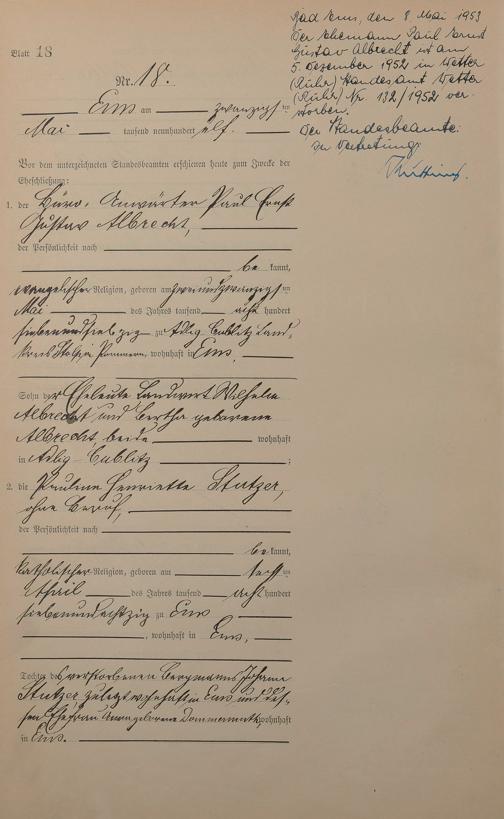 Bad Ems, den 8 Mai 1953
Der Ehemann Paul Ernst
Gustav Albrecht ist am
5. Dezember 1952 in Wetter
(Ruhr) Standesamt Wetter
(Ruhr) Nr. 132/1952 ver-
storben.
Der Standesbeamte:
In Vertretung:
Blatt 18
Nr. 18.
Ems am zwanzigsten
Mai tausend neunhundert elf.
Vor dem unterzeichneten Standesbeamten erschienen heute zum Zwecke der
Eheschließung:
1. der Büro-Anwärter Paul Ernst
Gustav Albrecht,
der Persönlichkeit nach
be kannt,
evangelischer Religion, geboren am zweiundzwanzigsten
Mai des Jahres tausend acht hundert
siebenundsiebzig zu Adlig Cublitz Land-
kreis Stolp in Pommern, wohnhaft in Ems,
Sohn der Eheleute Landwirt Wilhelm
Albrecht und Bertha geborene
Albrecht, beide wohnhaft
in Adlig-Cublitz ;
2. die Pauline Henriette Stutzer,
ohne Beruf,
der Persönlichkeit nach
be kannt,
katholischer Religion, geboren am
April des Jahres tausend acht hundert
siebenundachtzig zu Ems
, wohnhaft in Ems,
Tochter des verstorbenen Bergmanns Johann
Stutzer, zuletzt wohnhaft in Ems und des-
sen Ehefrau Anna geborene wohnhaft
in Ems.